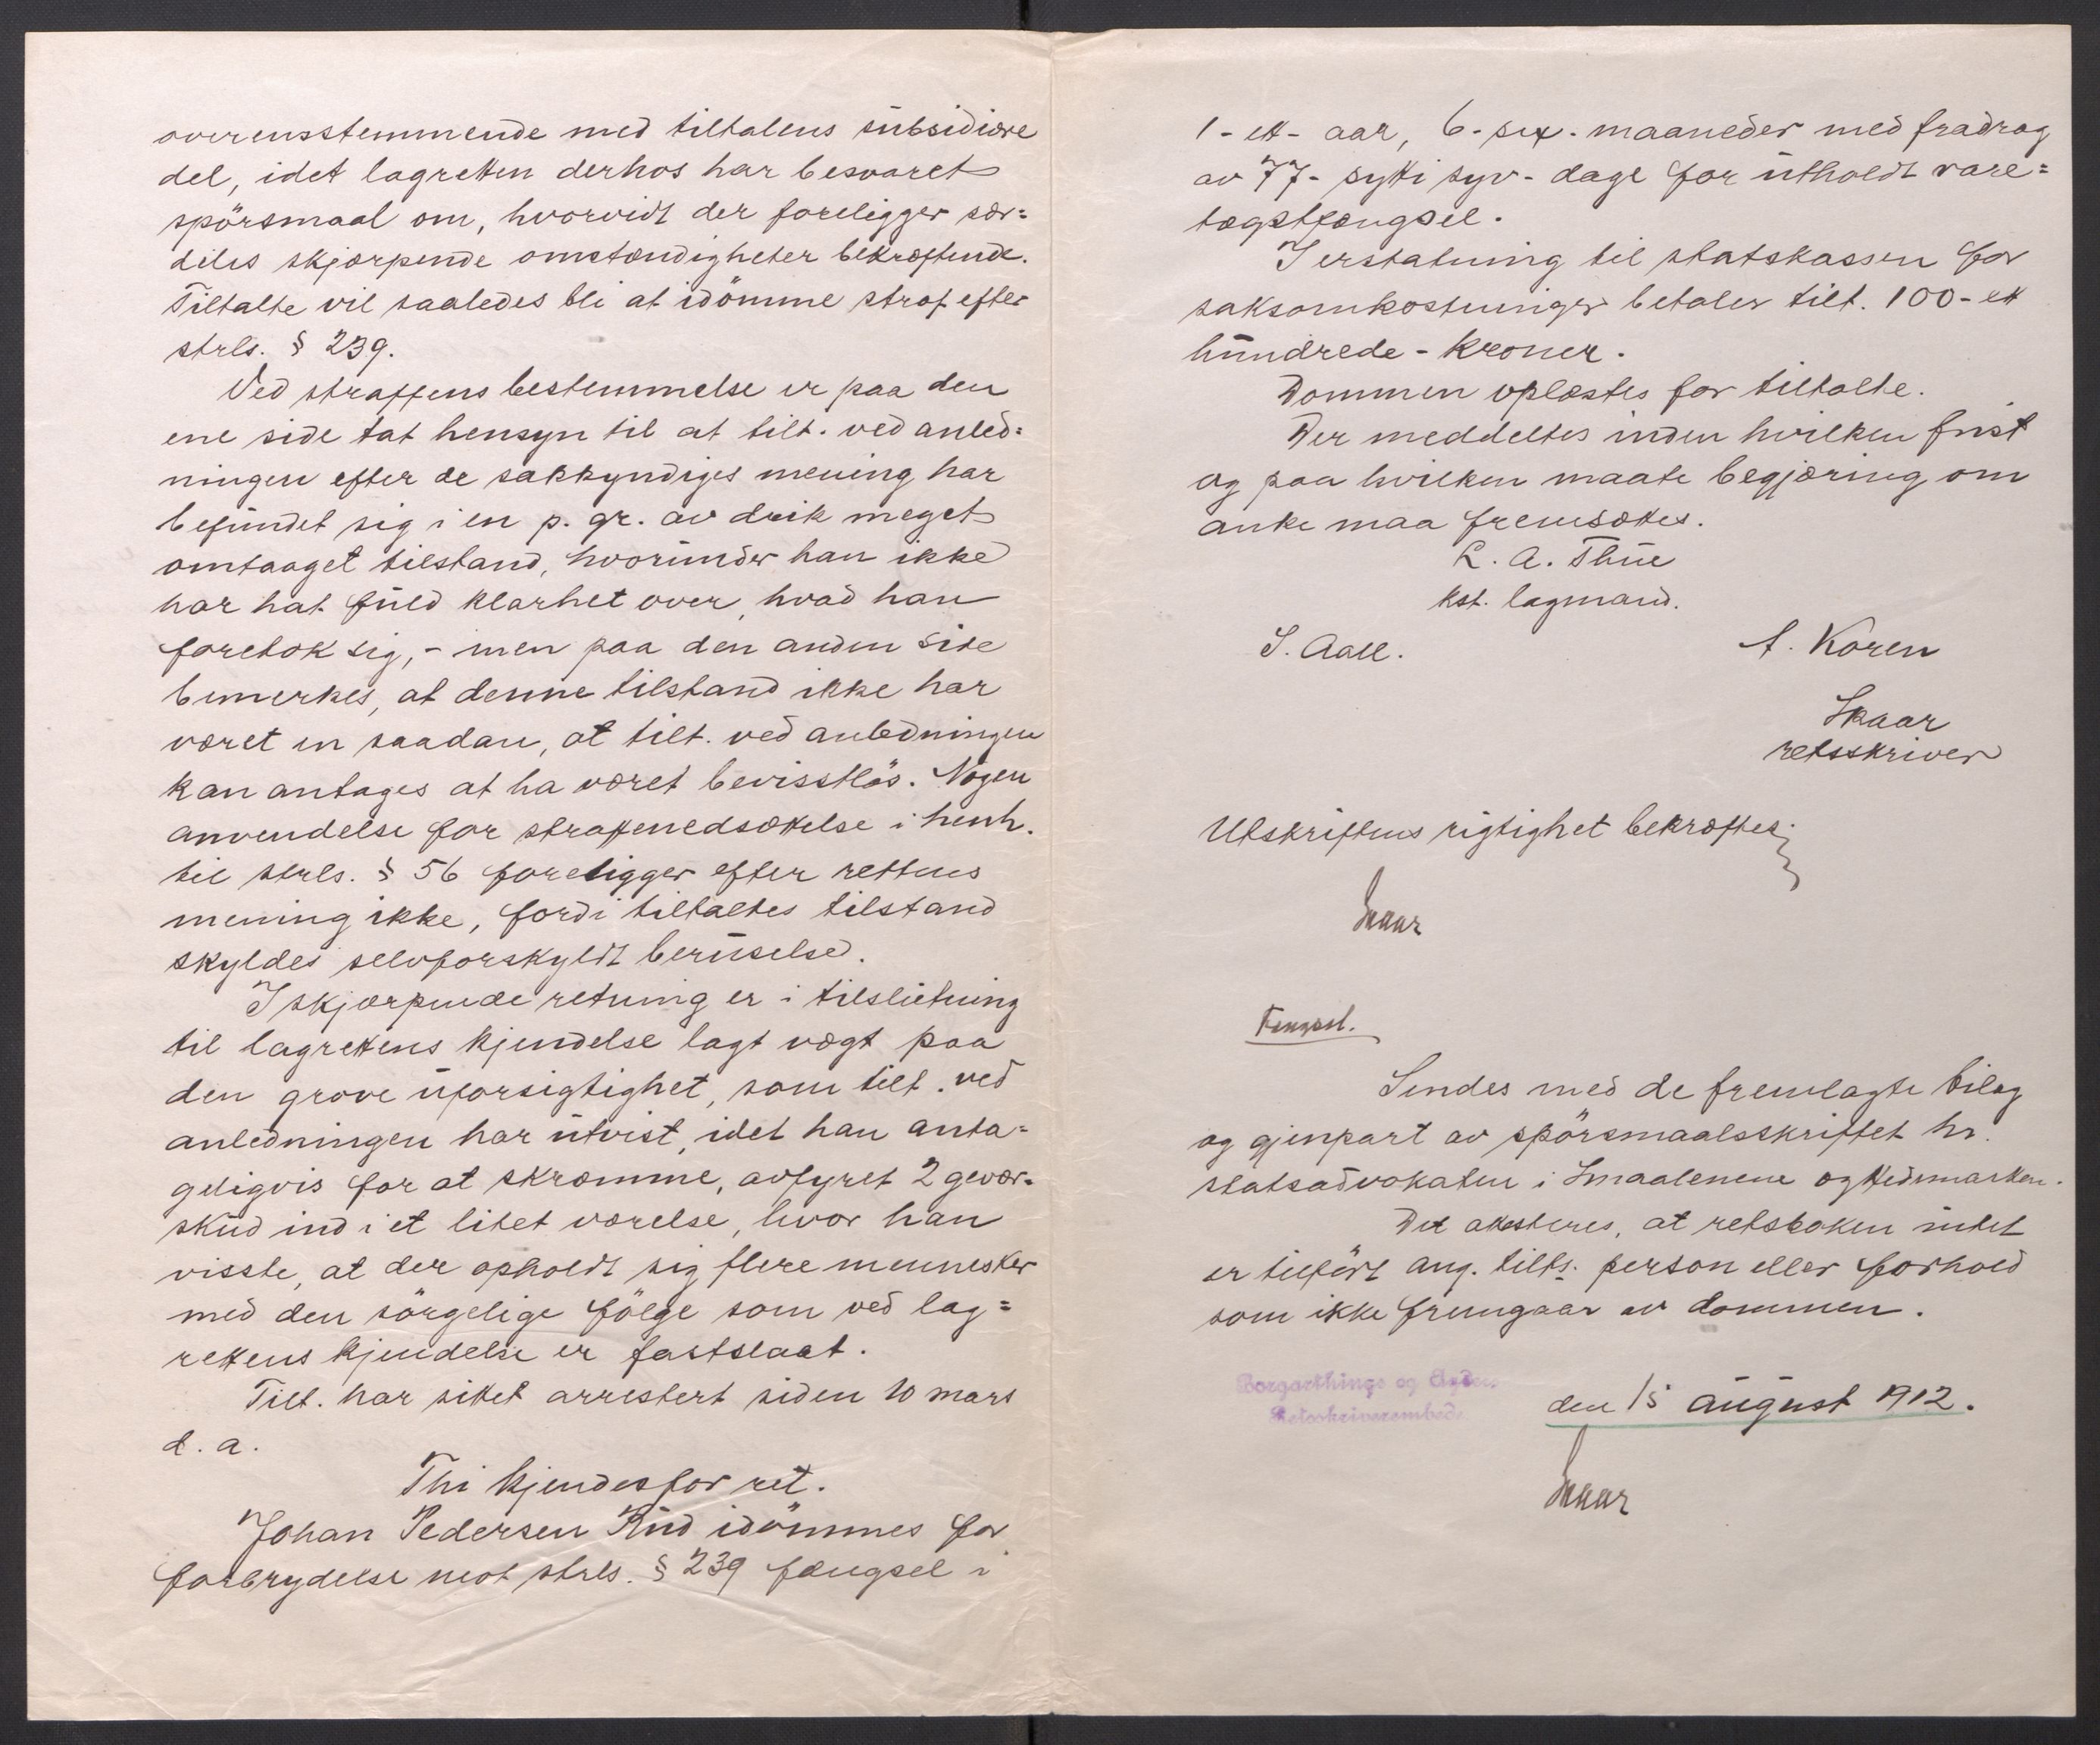 overensstemmende med tiltalens subsidiære
del, idet lagretten derhos har besvaret
spörsmaal om, hvorvidt der foreligger sær=
diles skjærpende omstændigheter bekræftende.
Tiltalte vil saaledes bli at idömme straf efter
strls. § 239.
Ved straffens bestemmelse er paa den
ene side tat hensyn til at tilt. ved anled=
ningen efter de sakkyndiges mening har
befundet sig i en p. gr. av drik meget
omtaaget tilstand, hvorunder han ikke
har hat fuld klarhet over, hvad han
foretok sig, - men paa den anden side
bemerkes, at denne tilstand ikke har
været en saadan, at tilt. ved anledningen
kan antages at ha været bevisstlös. Nogen
anvendelse for straffenedsættelse i henh.
til strls. § 56 foreligger efter rettens
mening ikke, fordi tiltaltes tilstand
skyldes selvforskyldt beruselse.
I skjærpende retning er i tilslutning
til lagrettens kjendelse lagt vægt paa
den grove uforsigtighet, som tilt. ved
anledningen har utvist, idet han anta=
geligvis for at skræmme, avfyret 2 gevær=
skud ind i et litet værelse, hvor han
visste, at der opholdt sig flere mennesker
med den sörgelige fölge som ved lag=
rettens kjendelse er fastslaat.
Tilt. har sittet arrestert siden 10 mars
d. a.
Thi kjendes for ret.
Johan Pedersen Rud idömmes for
forbrydelse mot strls. § 239 fængsel i
1 - ett - aar, 6 - sex - maaneder med fradrag
av 77 - sytti syv - dage for utholdt vare=
tægtsfængsel.
I erstatning til statskassen for
saksomkostninger betaler tilt. 100 - ett
hundrede - kroner.
Dommen oplæstes for tiltalte.
Der meddeltes inden hvilken frist
og paa hvilken maate begjæring om
anke maa fremsættes.
L. A. Thue
kst. lagmand.
S. Aall. A. Koren
Skaar
retsskriver
Utskriftens rigtighet bekræftes;
Skaar
Fængsel.
Sendes med de fremlagte bilag
og gjenpart av spörsmaalsskriftet hr.
statsadvokaten i Smaalenene og Hedemarken.
Det attesteres, at retsboken intet
er tilfört ang. tilts. person eller forhold
som ikke fremgaar av dommen.
Borgarthings og Agders
Retsskriverembede
den 15 august 1912.
Skaar